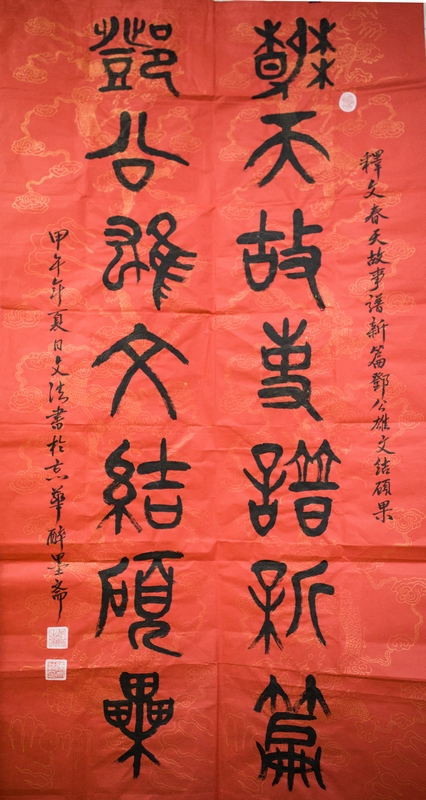 釋文春天故事譜新篇鄧公雄文結碩果
春天故事譜新篇
鄧公雄文結碩果
甲午年夏日文法書於京華醉墨斋